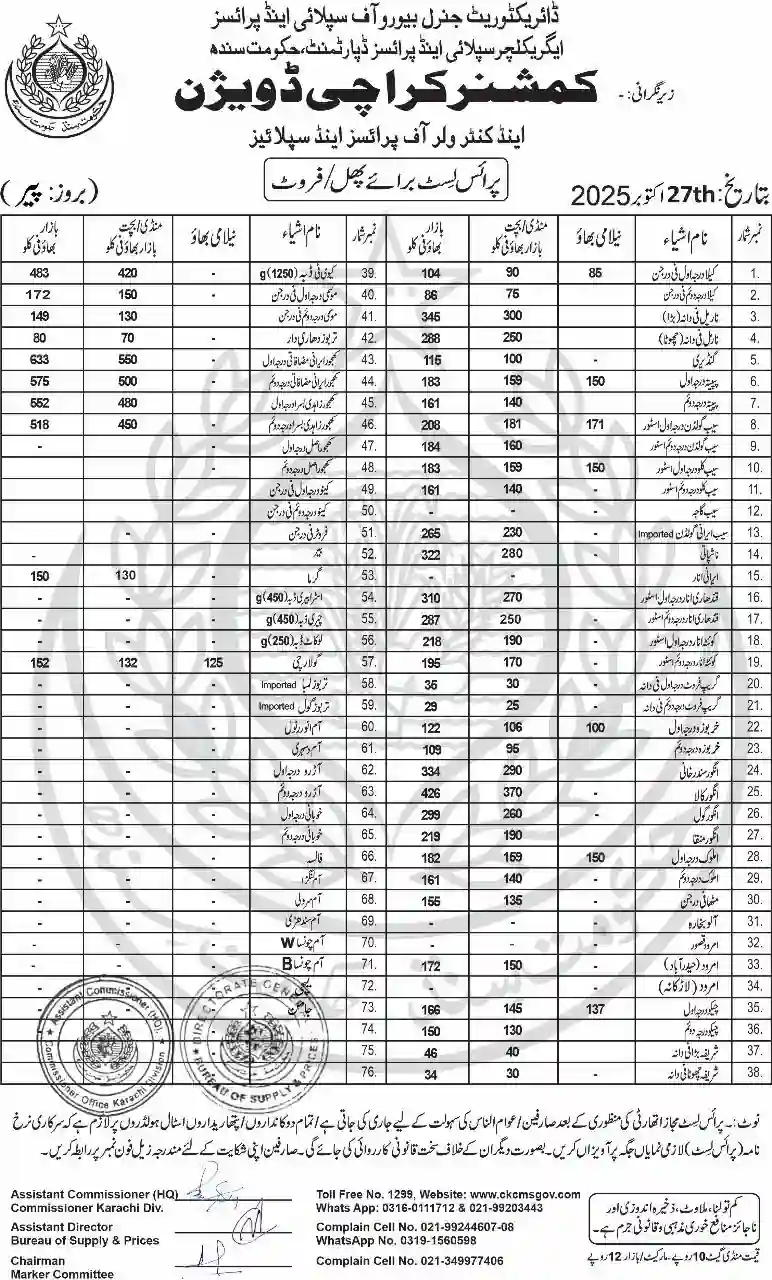 ڈائریکٹوریٹ جنرل بیورو آف سپلائی اینڈ پرائسز
ایگریکلچر سپلائی اینڈ پرائسز ڈپارٹمنٹ، حکومت سندھ
زیر نگرانی: -
کمشنر کراچی ڈویژن
اینڈ کنٹرولر آف پرائسز اینڈ سپلائیز
پرائس لسٹ برائے پھل/فروٹ
بتاریخ: 27th اکتوبر 2025
(بروز: پیر)
نمبر شمار نام اشیاء نیلامی بھاؤ منڈی/بچت بازار بھاؤ فی کلو بازار بھاؤ فی کلو
1. کیلا درجہ اول فی درجن 85 90 104
2. کیلا درجہ دوئم فی درجن 75 86
3. ناریل فی دانہ (بڑا) 300 345
4. ناریل فی دانہ (چھوٹا) 250 288
5. گنڈیری - 100 115
6. پپیتہ درجہ اول 150 159 183
7. پپیتہ درجہ دوئم 140 161
8. سیب گولڈن درجہ اول اسٹور 171 181 208
9. سیب گولڈن درجہ دوئم اسٹور - 160 184
10. سیب کلو درجہ اول اسٹور 150 159 183
11. سیب کلو درجہ دوئم اسٹور - 140 161
12. سیب گاجہ -
13. سیب ایرانی گولڈن Imported - 230 265
14. ناشپاتی - 280 322
15. ایرانی انار - -
16. قندھاری انار درجہ اول اسٹور 270 310
17. قندھاری انار درجہ دوئم اسٹور - 250 287
18. کوئٹہ انار درجہ اول اسٹور 190 218
19. کوئٹہ انار درجہ دوئم اسٹور - 170 195
20. گریپ فروٹ درجہ اول فی دانہ - 30 35
21. گریپ فروٹ درجہ دوئم فی دانہ - 25 29
22. خربوزہ درجہ اول 100 106 122
23. خربوزہ درجہ دوئم 95 109
24. انگور سندرخانی 290 334
25. انگور کالا 370 426
26. انگور گول - 260 299
27. انگور منقا 190 219
28. املوک درجہ اول 150 159 182
29. املوک درجہ دوئم - 140 161
30. مٹھا فی درجن - 135 155
31. آلو بخارہ - - -
32. امرود قصور - - -
33. امرود (حیدرآباد) - 150 172
34. امرود (لاڑکانہ) - -
35. چیکو درجہ اول 137 145 166
36. چیکو درجہ دوئم 130 150
37. شریفہ بڑا فی دانہ 40 46
38. شریفہ چھوٹا فی دانہ - 30 34
نمبر شمار نام اشیاء نیلامی بھاؤ منڈی/بچت بازار بھاؤ فی کلو بازار بھاؤ فی کلو
39. کیوی فی ڈبہ (1250)g - 420 483
40. موسمی درجہ اول فی درجن - 150 172
41. موسمی درجہ دوئم فی درجن 130 149
42. تربوز دھاری دار - 70 80
43. کھجور ایرانی مضافاتی درجہ اول - 550 633
44. کھجور ایرانی مضافاتی درجہ دوئم - 500 575
45. کھجور زاہدی بسرا درجہ اول - 480 552
46. کھجور زاہدی بسرا درجہ دوئم - 450 518
47. کھجور اصل درجہ اول - -
48. کھجور اصل درجہ دوئم - -
49. کینو درجہ اول فی درجن
50. کینو درجہ دوئم فی درجن
51. فروٹر فی درجن - -
52. بیر -
53. گرما - 130 150
54. اسٹرابیری ڈبہ (450)g
55. چیری ڈبہ (450)g
56. لوکاٹ ڈبہ (250)g
57. گولارچی 125 132 152
58. تربوز لمبا Imported - - -
59. تربوز گول Imported - - -
60. آم انور رٹول - - -
61. آم دسہری - - -
62. آڑو درجہ اول - - -
63. آڑو درجہ دوئم - - -
64. خوبانی درجہ اول - - -
65. خوبانی درجہ دوئم - - -
66. فالسہ - - -
67. آم لنگڑا - - -
68. آم سرولی - - -
69. آم سندھڑی - - -
70. آم چونسا W - - -
71. آم چونسا B - - -
72. لیچی
73. جامن
74.
75.
76.
Assistant Commissioner (HQ).
Commissioner Office Karachi Division
DIRECTORATE GENERAL
BUREAU OF SUPPLY & PRICES
نوٹ:- پرائس لسٹ مجاز اتھارٹی کی منظوری کے بعد صارفین/عوام الناس کی سہولت کے لیے جاری کی جاتی ہے/تمام دوکانداروں/پتھاریداروں اسٹال ہولڈروں پر لازم ہے کہ سرکاری نرخ
نامہ (پرائس لسٹ) لازمی نمایاں جگہ پر آویزاں کریں۔ بصورت دیگر ان کے خلاف سخت قانونی کارروائی کی جائے گی۔ صارفین اپنی شکایت کے لئے مندرجہ زیل فون نمبر پر رابطہ کریں۔
Assistant Commissioner (HQ)
Commissioner Karachi Div.
Toll Free No. 1299, Website: www.ckcmsgov.com
Whats App: 0316-0111712 & 021-99203443
Assistant Director
Bureau of Supply & Prices
Complain Cell No. 021-99244607-08
WhatsApp No. 0319-1560598
Chairman
Marker Committee
Complain Cell No. 021-349977406
کم تولنا، ملاوٹ، ذخیرہ اندوزی اور
ناجائز منافع خوری مذہبی و قانونی جرم ہے۔
قیمت منڈی گیٹ 10 روپے، مارکیٹ/بازار 12 روپے